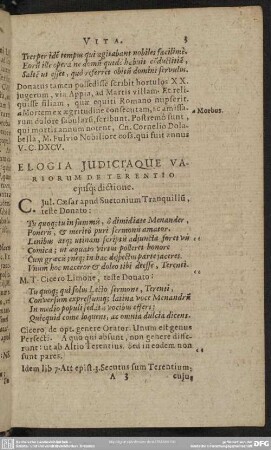 VITA. 3
Tres per idē tempus qui agitabant nobiles facillimè.
Eorū ille opera ne domū quidē habuit cōductitiā,
Saltē ut esset, quò referret obitū domini servulus.
Donatus tamen possedisse scribit hortulos XX.
jugerum, via Appia, ad Martis villam. Et reli-
quisse filiam, quæ equiti Romano nupserit.
Mortem ex ægritudine constitutam, & amissa-
rum dolore fabularū, scribunt. Postremò sunt,
qui mortis annum notent, Cn. Cornelio Dola-
bella, M. Fulvio Nobiliore coss. qui fuit annus
V. C. DXCV.
Morbus.
ELOGIA JUDICIAQUE VA-
RIORUM DE TERENTIO
ejusq; dictione.
C. Jul. Cæsar apud Suetonium Tranquillū,
teste Donato:
Tu quoq; tu in summis, ô dimidiate Menander,
Poneris, & meritò puri sermonis amator.
Lenibus atq; utinam scriptis adjuncta foret vis
Comica; ut æquato virtus polleret honore
Cum græcis: neq; in hac despectus parte jaceres.
Unum hoc maceror & doleo tibi deesse, Terenti.
M. T. Cicero Limone, teste Donato:
Tu quoq; qui solus lecto sermone, Terenti,
Conversum expressumq; latina voce Menandrū
In medio populi sedatis vocibus effers;
Quicquid come loquens, ac omnia dulcia dicens.
Cicero de opt. genere Orator. Unum est genus
Perfecti. A quo qui absunt, non genere diffe-
runt ut ab Attio Terentius. Sed in eodem non
sunt pares.
Idem lib. 7. Att. epist. 3. Secutus sum Terentium,
A 3 cuju,